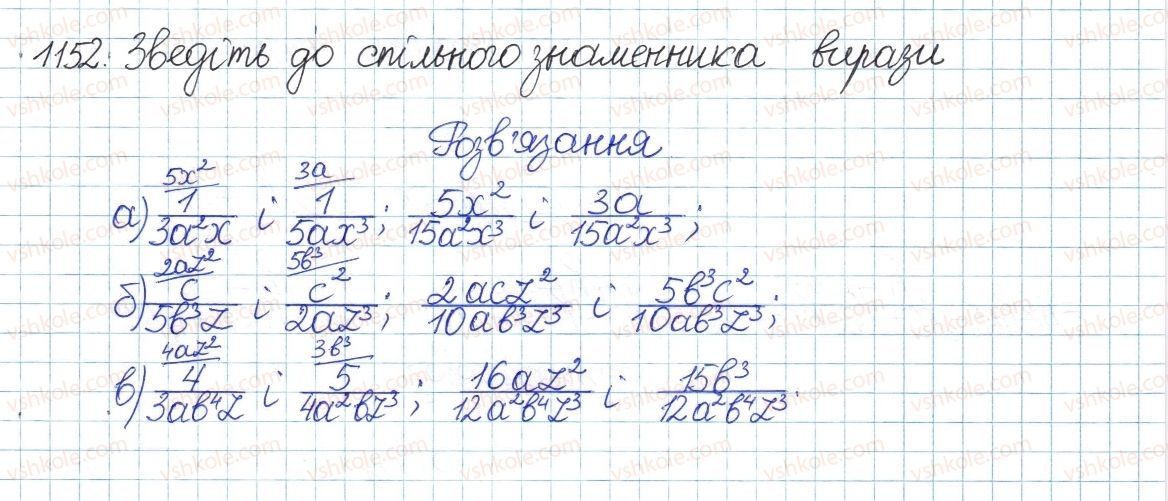 1152. Зведіть до спільного знаменника вирази
Розв'язання
а) 5x²/ 1/3a²x і 3a/ 1/5ax³; 5x²/15a²x³ і 3a/15a²x³;
б) 2az²/ c/5b³z і 5b³/ c²/2az³; 2acz²/10ab³z³ і 5b³c²/10ab³z³;
в) 4az²/ 4/3ab⁴z і 3b³/ 5/4a²bz³; 16az²/12a²b⁴z³ і 15b³/12a²b⁴z³.